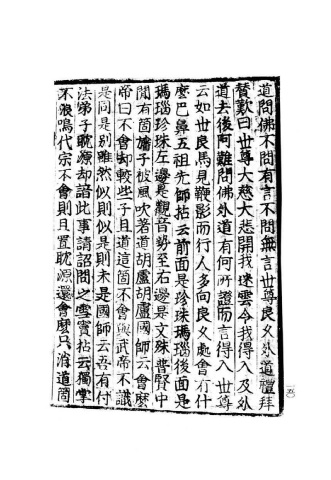 道問佛不問有言不問無言世尊良久外道禮拜
賛歎曰世尊大慈大悲開我迷雲令我得入及外
道去後阿難問佛外道有何所證而言得入世尊
云如世良馬見鞭影而行人多向良久處會有什
麼巴鼻五祖先師拈云前面是珍珠瑪瑙後面是
瑪瑙珍珠左邊是觀音勢至右邊是文殊普賢中
間有箇幡子被風吹著道胡盧胡盧國師云會麼
帝曰不會却較些子且道這箇不會與武帝不識
是同是別雖然似則似是則未是國師云吾有付
法弟子耽源却諳此事請詔問之雪竇拈云獨掌
不浪鳴代宗不會則且置耽源還會麼只消道箇